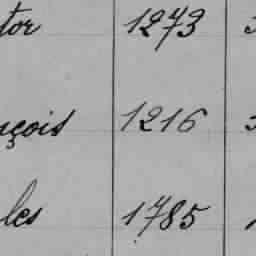 tor 1273
nçois 1216
les 1785